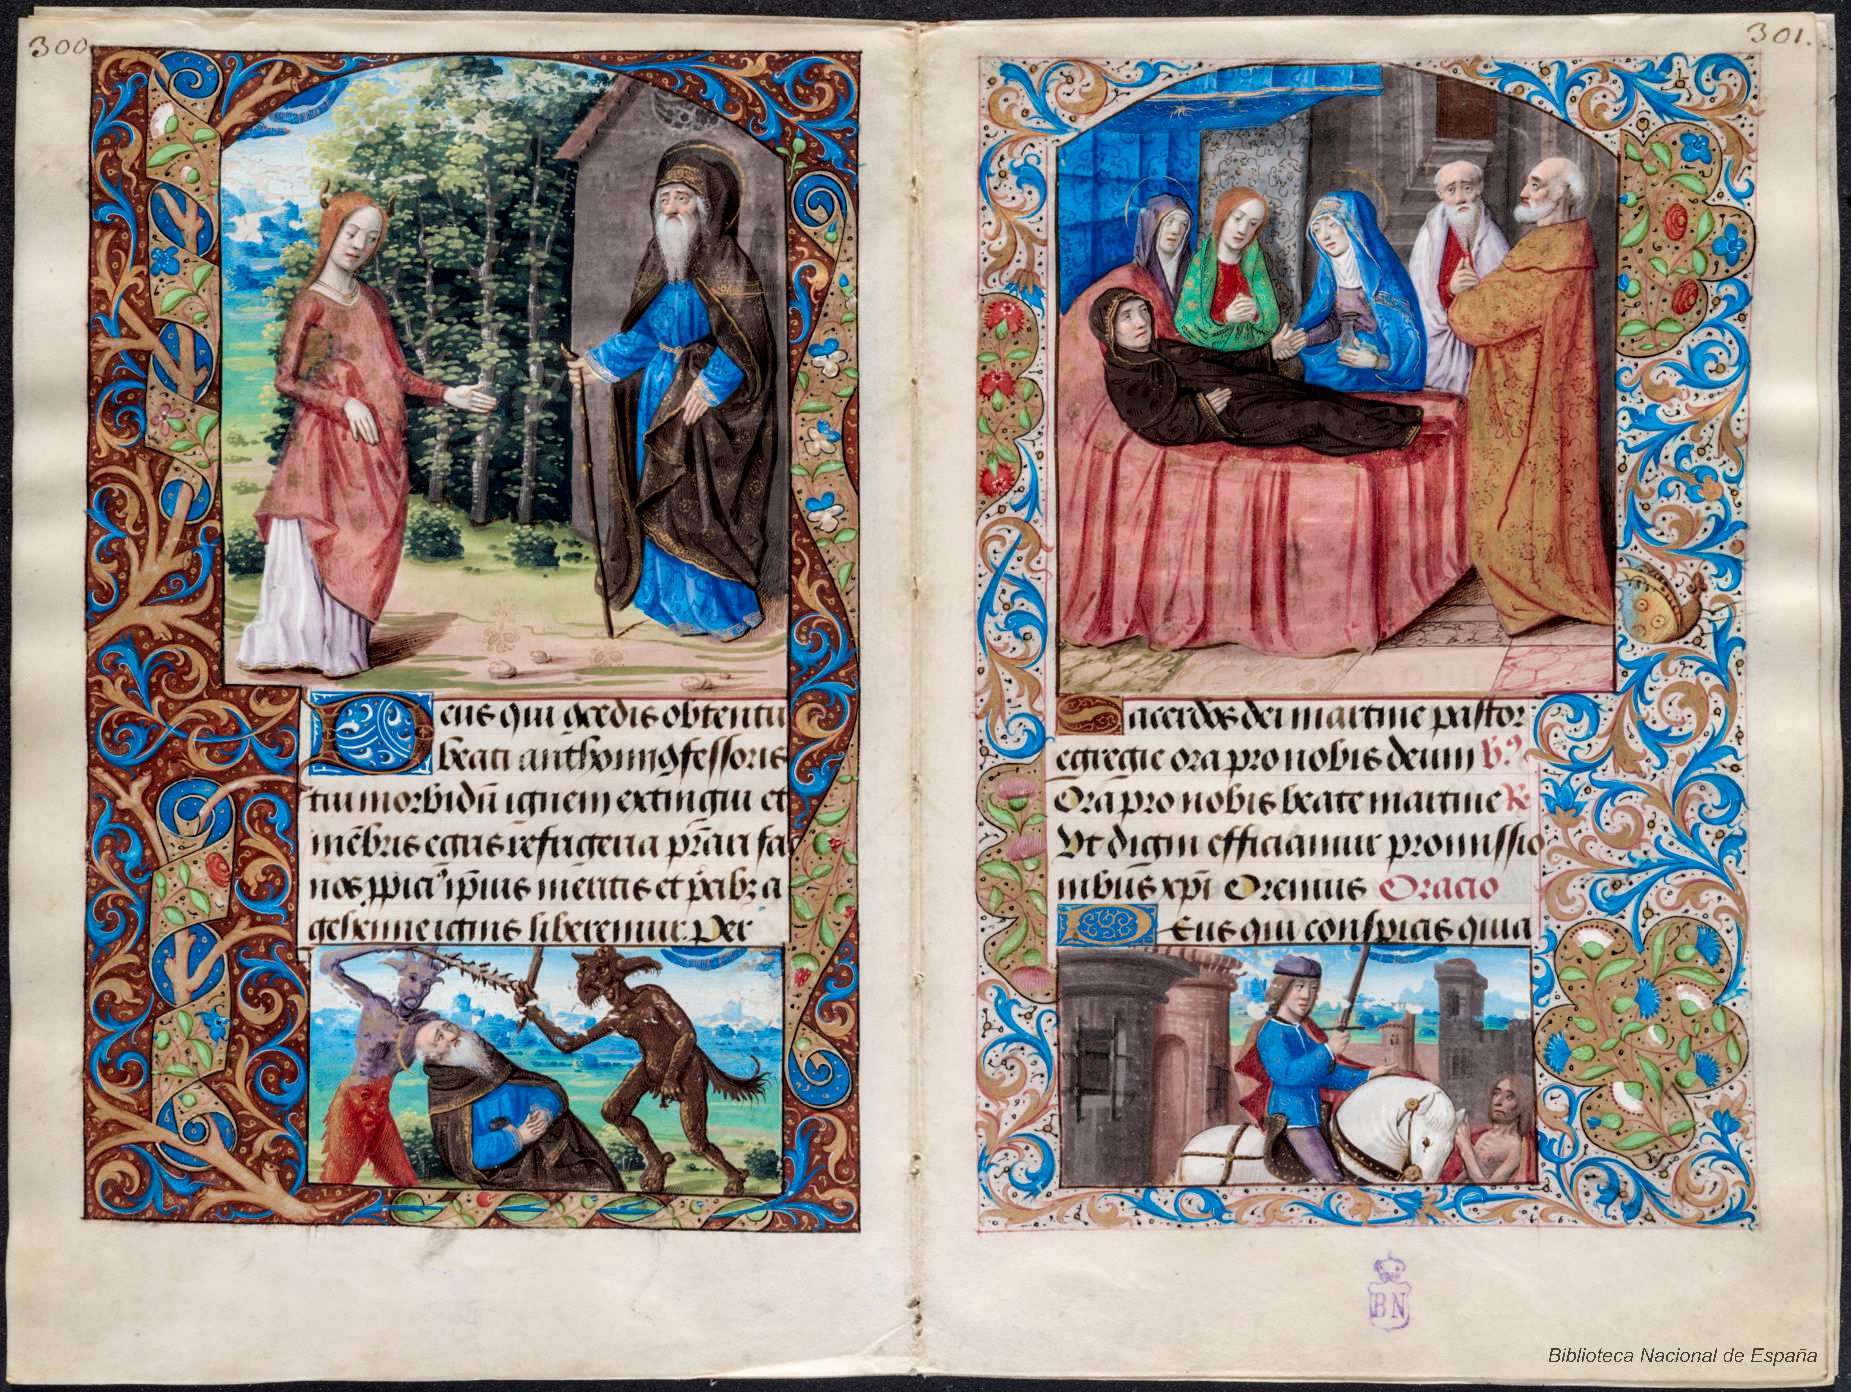 300
Deus qui gcedis obtentu
beati anthonii gfessoris
tui morbidū ignem extingui et
mēbris egris refrigeria prāri fac
nos ppici' ipius meritis et pcibz a
gehenne ignis liberemur. Per
301.
Sacerdos dei martine pastor
egregie ora pro nobis deum
Ora pro nobis beate martine R
Vt digni efficiamur promissio
nibus xpi Oremus Oracio
DEus qui conspicis quia
BN
Biblioteca Nacional de España